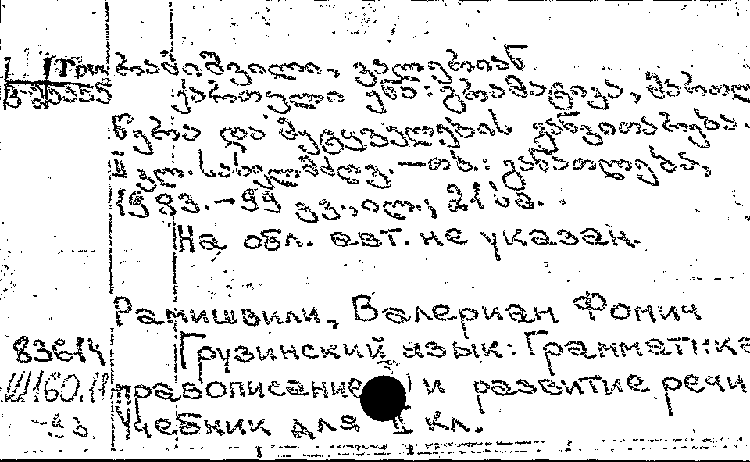 Груз რამიშვილი, ვალერიან
ქართული ენა: გრამატიკა, მართლ
წერა და მეტყველების განვითარება.
II კლ. სახელმძღვ. — თბ.: განათლება,
1983. — 99 გვ.: ილ.; 21 სმ.
На обл. авт. не указан.
Рамишвили, Валериан Фомич
83614 Грузинский язык: Грамматика
Ш160.11 правописание и развитие речи
Учебник для кл.